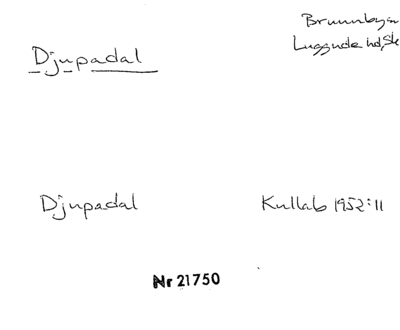 Djupadal
Luggude hd, Sk
Djupadal
Kullab 1952:11
Nr 21750